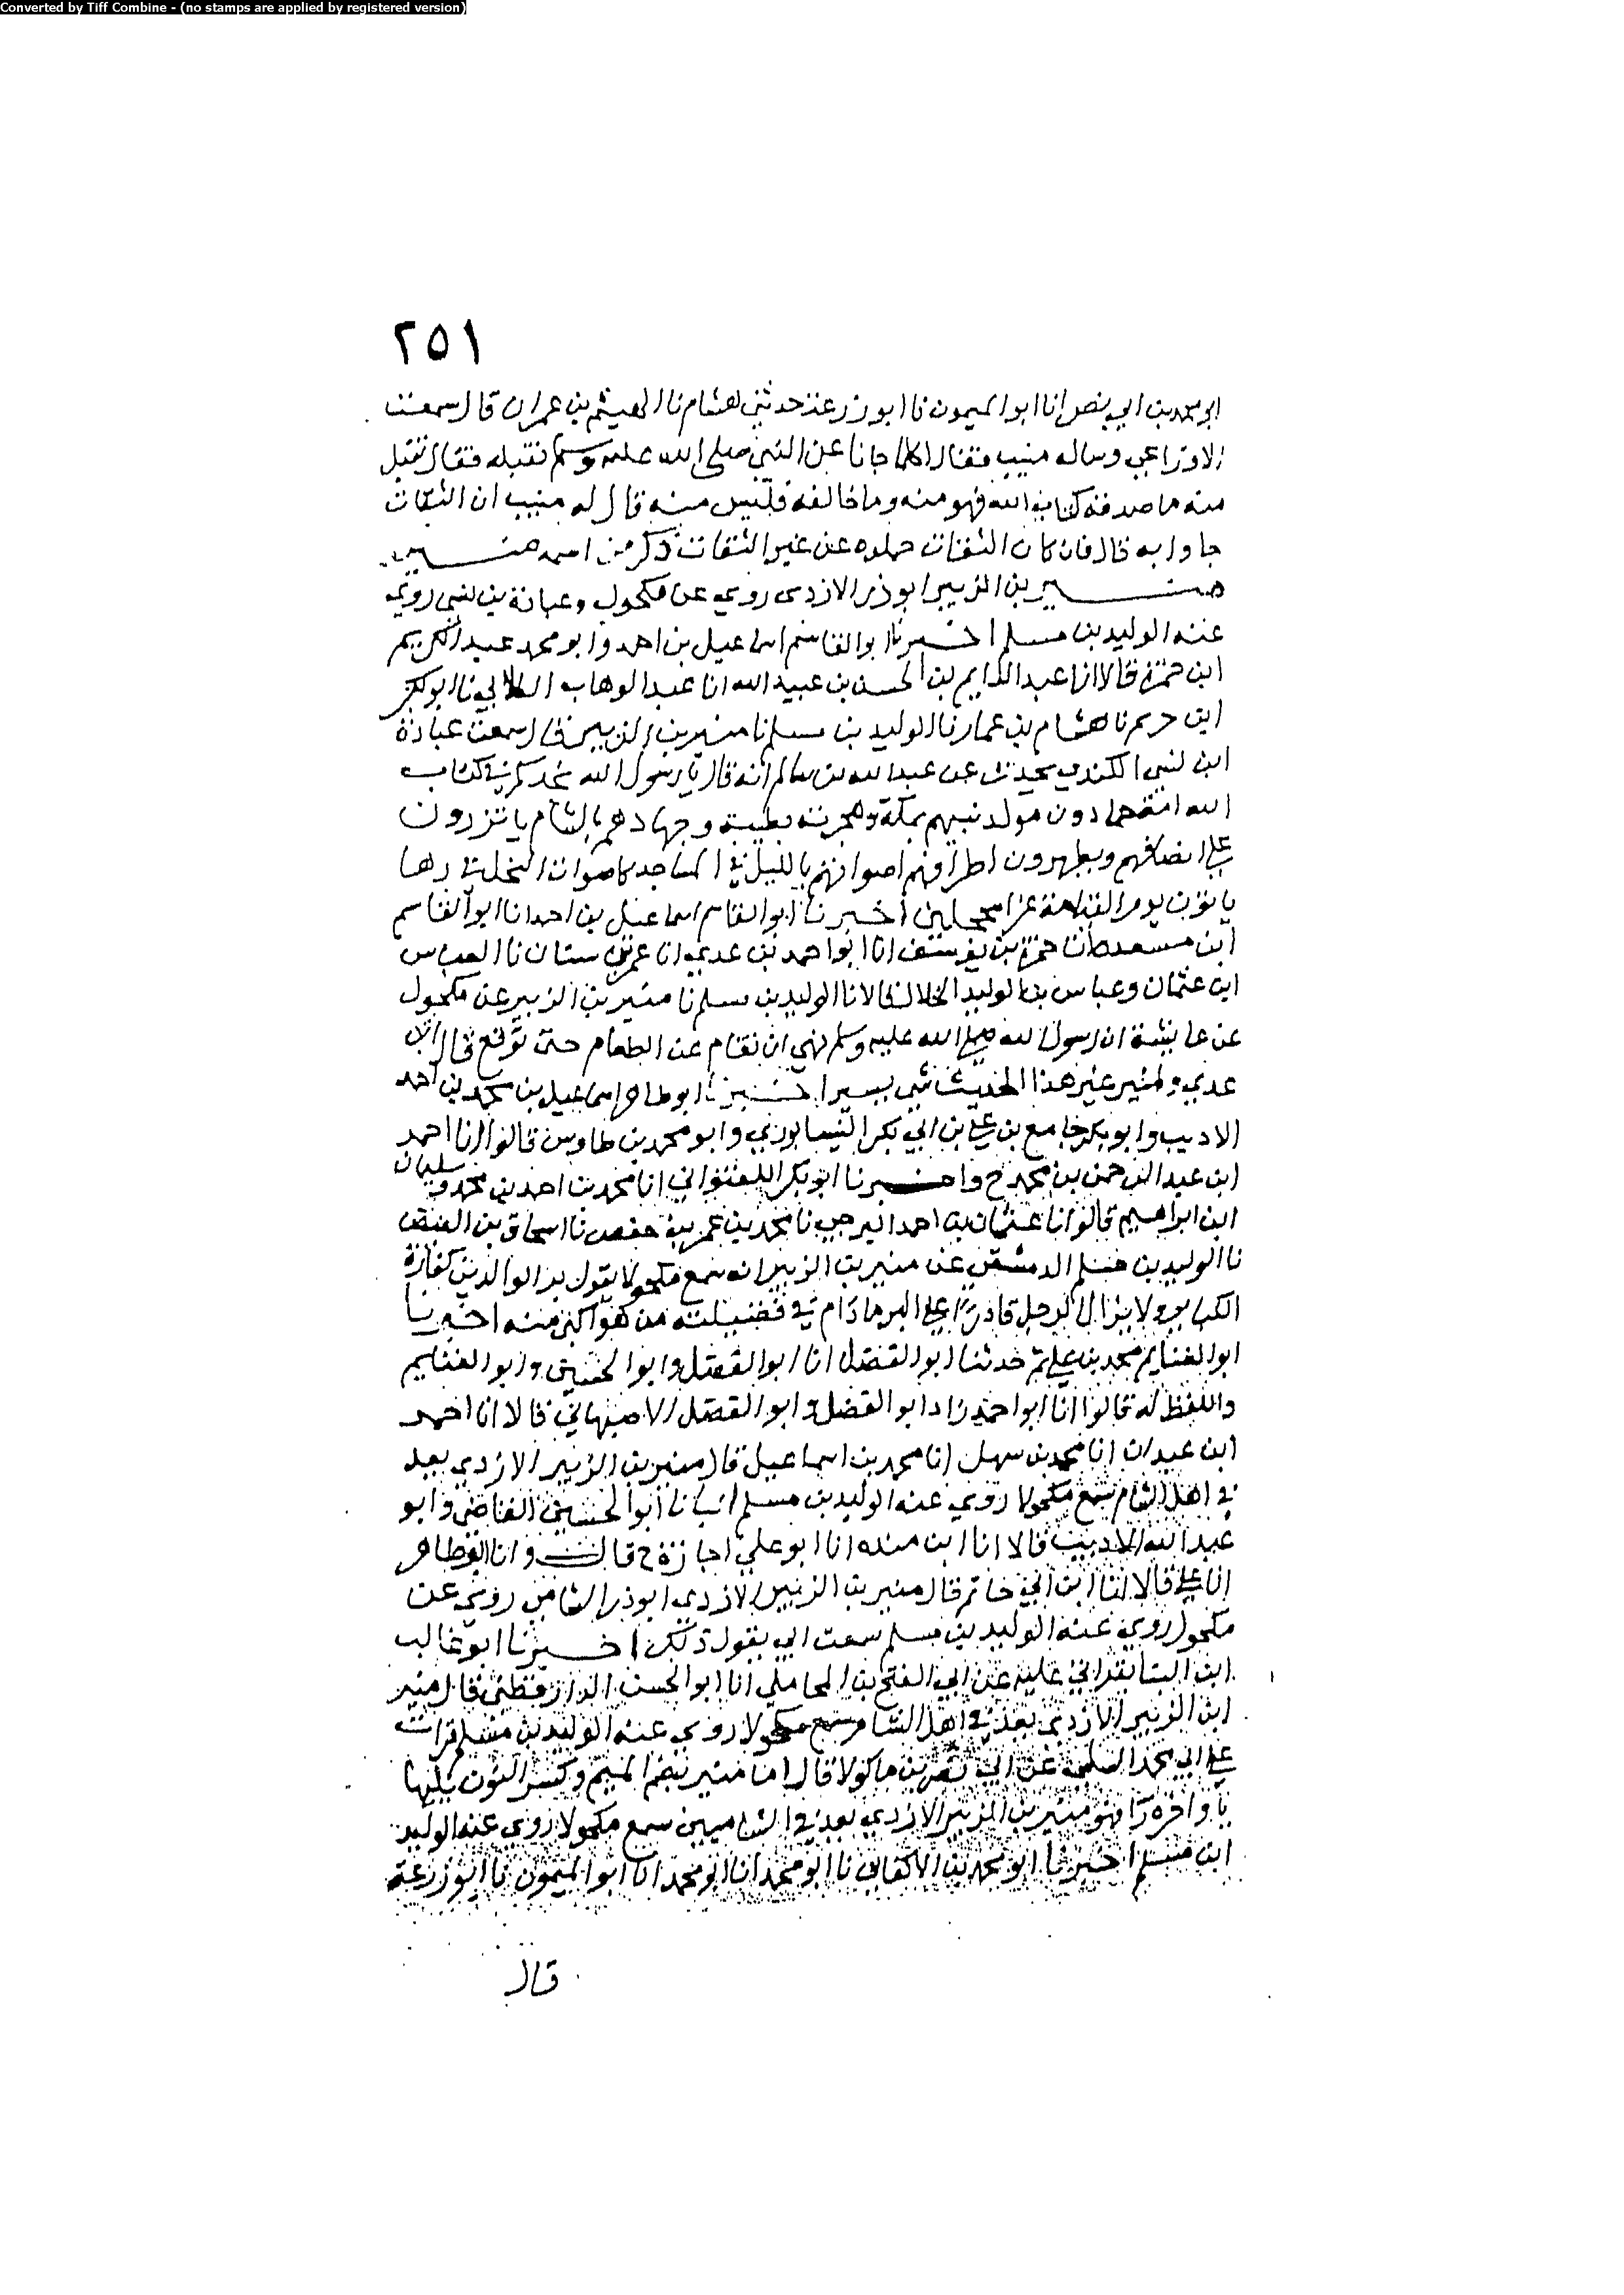 Converted by Tiff Combine - (no stamps are applied by registered version)
٢٥١
ابو محمد بن ابي نصر انا ابو الميمون نا ابو زرعة حدثني هشام نا الهيثم بن عمران قال سمعت
الاوزاعي وساله منيب فقال اكلما جانا عن النبي صلى الله عليه وسلم نقبله فقال نقبل
منه ما صدقه كتاب الله فهو منه وما خالفه فليس منه قال له منيب ان الثقات
جاوا به قال فان كان الثقات حملوه عن غير الثقات ذكر من اسمه منير
منير بن الزبير ابو ذر الازدى روى عن مكحول وعبادة بن نسي روى
عنه الوليد بن مسلم اخبرنا ابو القاسم اسماعيل بن احمد وابو محمد عبد الكريم
ابن حمزة قالا انا عبد الدايم بن الحسن بن عبيد الله انا عبد الوهاب الكلابي نا ابو بكر
ابن خريم نا هشام بن عمار نا الوليد بن مسلم نا منير بن الزبير قال سمعت عبادة
ابن نسي الكندي يحدث عن عبد الله بن سالم انه قال يا رسول الله نجدكم في كتاب
الله امة حمادون مولد نبيهم بمكة وهجرته بطيبة وجهادهم بالشام ياتزرون
على انصافهم ويطهرون اطرافهم اصواتهم بالليل في المساجد كاصوات النحل
ياتون يوم القيامة غرا محجلين اخبرنا ابو القاسم اسماعيل بن احمد انا ابو القاسم
ابن مسعدة انا حمزة بن يوسف انا ابو احمد بن عدي انا عمر بن سنان نا العباس
ابن عثمان وعباس بن الوليد الخلال قالا نا الوليد بن مسلم نا منير بن الزبير عن مكحول
عن عايشة ان رسول الله صلى الله عليه وسلم نهى ان نقام عن الطعام حتى توفع قال ابن
عدي ولمنير غير هذا الحديث شي يسير اخبرنا ابو طاهر اسماعيل بن محمد بن احمد
الاديب وابو بكر جامع بن علي بن ابي بكر النيسابوري وابو محمد بن طاوس قالوا انا احمد
ابن عبد الرحمن بن محمد ح واخبرنا ابو بكر اللفتواني انا محمد بن احمد بن محمد وسليمان
ابن ابراهيم قالوا انا عثمان بن احمد البرجي نا محمد بن عمر بن حفص نا اسحاق بن الفيض
نا الوليد بن مسلم الدمشقي عن منير بن الزبير انه سمع مكحولا يقول بر الوالدين كفارة
الكبايو ولا يزال الرجل قادرا على البر ما دام في فضيلته من هو اكبر منه اخبرنا
ابو الغنايم محمد بن علي ثم حدثنا ابو الفضل انا ابو الفضل وابو الحسين وابو الغنايم
واللفظ له قالوا انا ابو احمد زاد ابو الفضل وابو الفضل الاصبهاني قالا انا احمد
ابن عبدان انا محمد بن سهل انا محمد بن اسماعيل قال منير بن الزبير الازدي يعد
في اهل الشام سمع مكحولا روى عنه الوليد بن مسلم انبانا ابو الحسين القاضي وابو
عبد الله الاديب قالا انا ابن منده انا ابو علي اجازة ح قال وانا ابو طاهر
انا علي قالا انا ابن ابي حاتم قال منير بن الزبير الازدي ابو ذر الشامي روى عن
مكحول روى عنه الوليد بن مسلم سمعت ابي يقول ذلك اخبرنا ابو غالب
ابن البنا بقراتي عليه عن ابي الفتح بن المحاملي انا ابو الحسن الدارقطني قال منير
ابن الزبير الازدي يعد في اهل الشام سمع مكحولا روى عنه الوليد بن مسلم قرات
على ابي محمد السلمي عن ابي نصر بن ماكولا قال اما منير بضم الميم وكسر النون يليها
يا واخره را فهو منير بن الزبير الازدي يعد في الشاميين سمع مكحولا روى عنه الوليد
ابن مسلم اخبرنا ابو محمد بن الاكفاني نا ابو محمد انا ابو محمد انا ابو الميمون نا ابو زرعة
قال